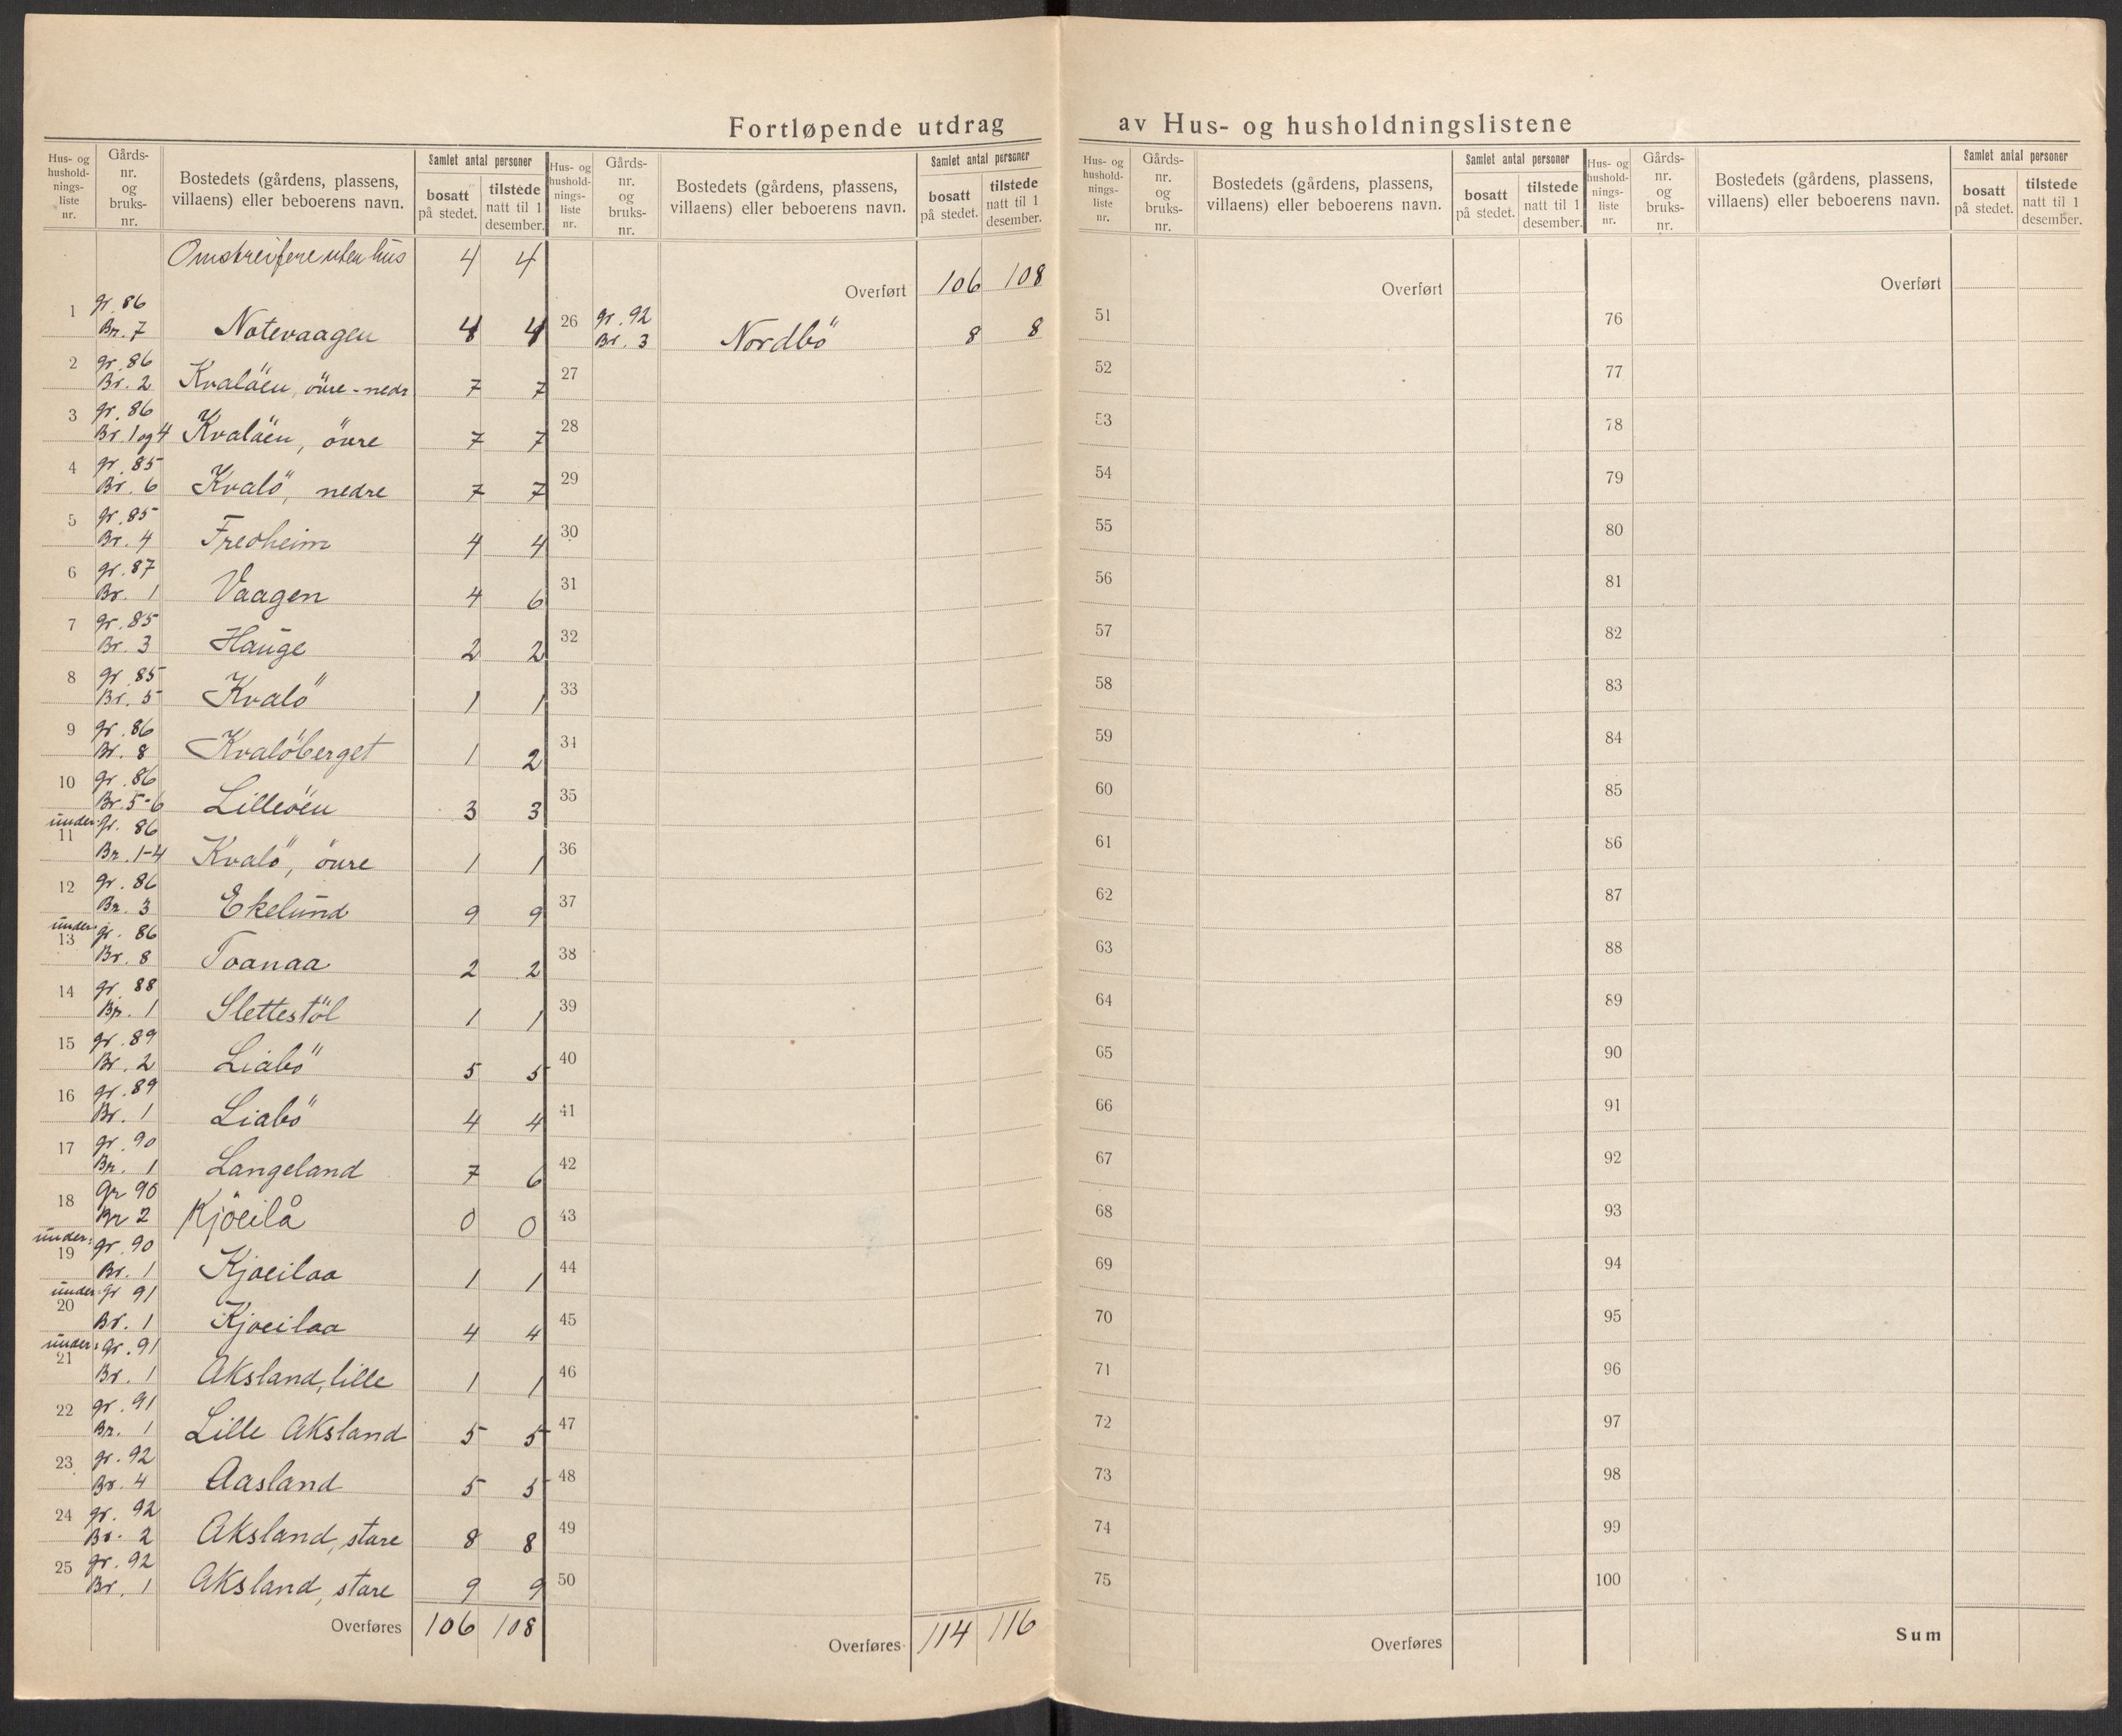 Fortløpende utdrag av Hus- og husholdningslistene
Hus- og husholdningsliste nr. | Gårds- nr. og bruks- nr. | Bostedets (gårdens, plassens, villaens) eller beboerens navn. | Samlet antal personer | bosatt på stedet. | tilstede natt til 1 desember.
Omstreifere uten hus 4 4
1 gr. 86 Br. 7 Notevaagen 4 4
2 gr. 86 Br. 2 Kvaløen, øvre-nedr 7 7
3 gr. 86 Br. 1 og 4 Kvaløen, øvre 7 7
4 gr. 85 Br. 6 Kvalö, nedre 7 7
5 gr. 85 Br. 4 Fredheim 4 4
6 gr. 87 Br. 1 Vaagen 4 6
7 gr. 85 Br. 3 Hauge 2 2
8 gr. 85 Br. 5 Kvalö 1 1
9 gr. 86 Br. 8 Kvalöberget 1 2
10 gr. 86 Br. 5-6 Lilleöen 3 3
11 under gr. 86 Br. 1-4 Kvalö, övre 1 1
12 gr. 86 Br. 3 Ekelund 9 9
13 under gr. 86 Br. 8 Toanaa 2 2
14 gr. 88 Br. 1 Slettestöl 1 1
15 gr. 89 Br. 2 Liabö 5 5
16 gr. 89 Br. 1 Liabö 4 4
17 gr. 90 Br. 1 Langeland 7 6
18 Gr 90 Br 2 Kjöeilå 0 0
19 under: gr. 90 Br. 1 Kjoeilaa 1 1
20 under gr 91 Br. 1 Kjoeilaa 4 4
21 under: gr. 91 Br. 1 Aksland, lille 1 1
22 gr. 91 Br. 1 Lille Aksland 5 5
23 gr. 92 Br. 4 Aasland 5 5
24 gr. 92 Br. 2 Aksland, store 8 8
25 gr. 92 Br. 1 Aksland, store 9 9
Overføres 106 108
Hus- og husholdningsliste nr. | Gårds- nr. og bruks- nr. | Bostedets (gårdens, plassens, villaens) eller beboerens navn. | Samlet antal personer | bosatt på stedet. | tilstede natt til 1 desember.
Overført 106 108
26 gr. 92 Br. 3 Nordbö 8 8
27
28
29
30
31
32
33
34
35
36
37
38
39
40
41
42
43
44
45
46
47
48
49
50
Overføres 114 116
Hus- og husholdningsliste nr. | Gårds- nr. og bruks- nr. | Bostedets (gårdens, plassens, villaens) eller beboerens navn. | Samlet antal personer | bosatt på stedet. | tilstede natt til 1 desember.
Overført
51
52
53
54
55
56
57
58
59
60
61
62
63
64
65
66
67
68
69
70
71
72
73
74
75
Overføres
Hus- og husholdningsliste nr. | Gårds- nr. og bruks- nr. | Bostedets (gårdens, plassens, villaens) eller beboerens navn. | Samlet antal personer | bosatt på stedet. | tilstede natt til 1 desember.
Overført
76
77
78
79
80
81
82
83
84
85
86
87
88
89
90
91
92
93
94
95
96
97
98
99
100
Sum